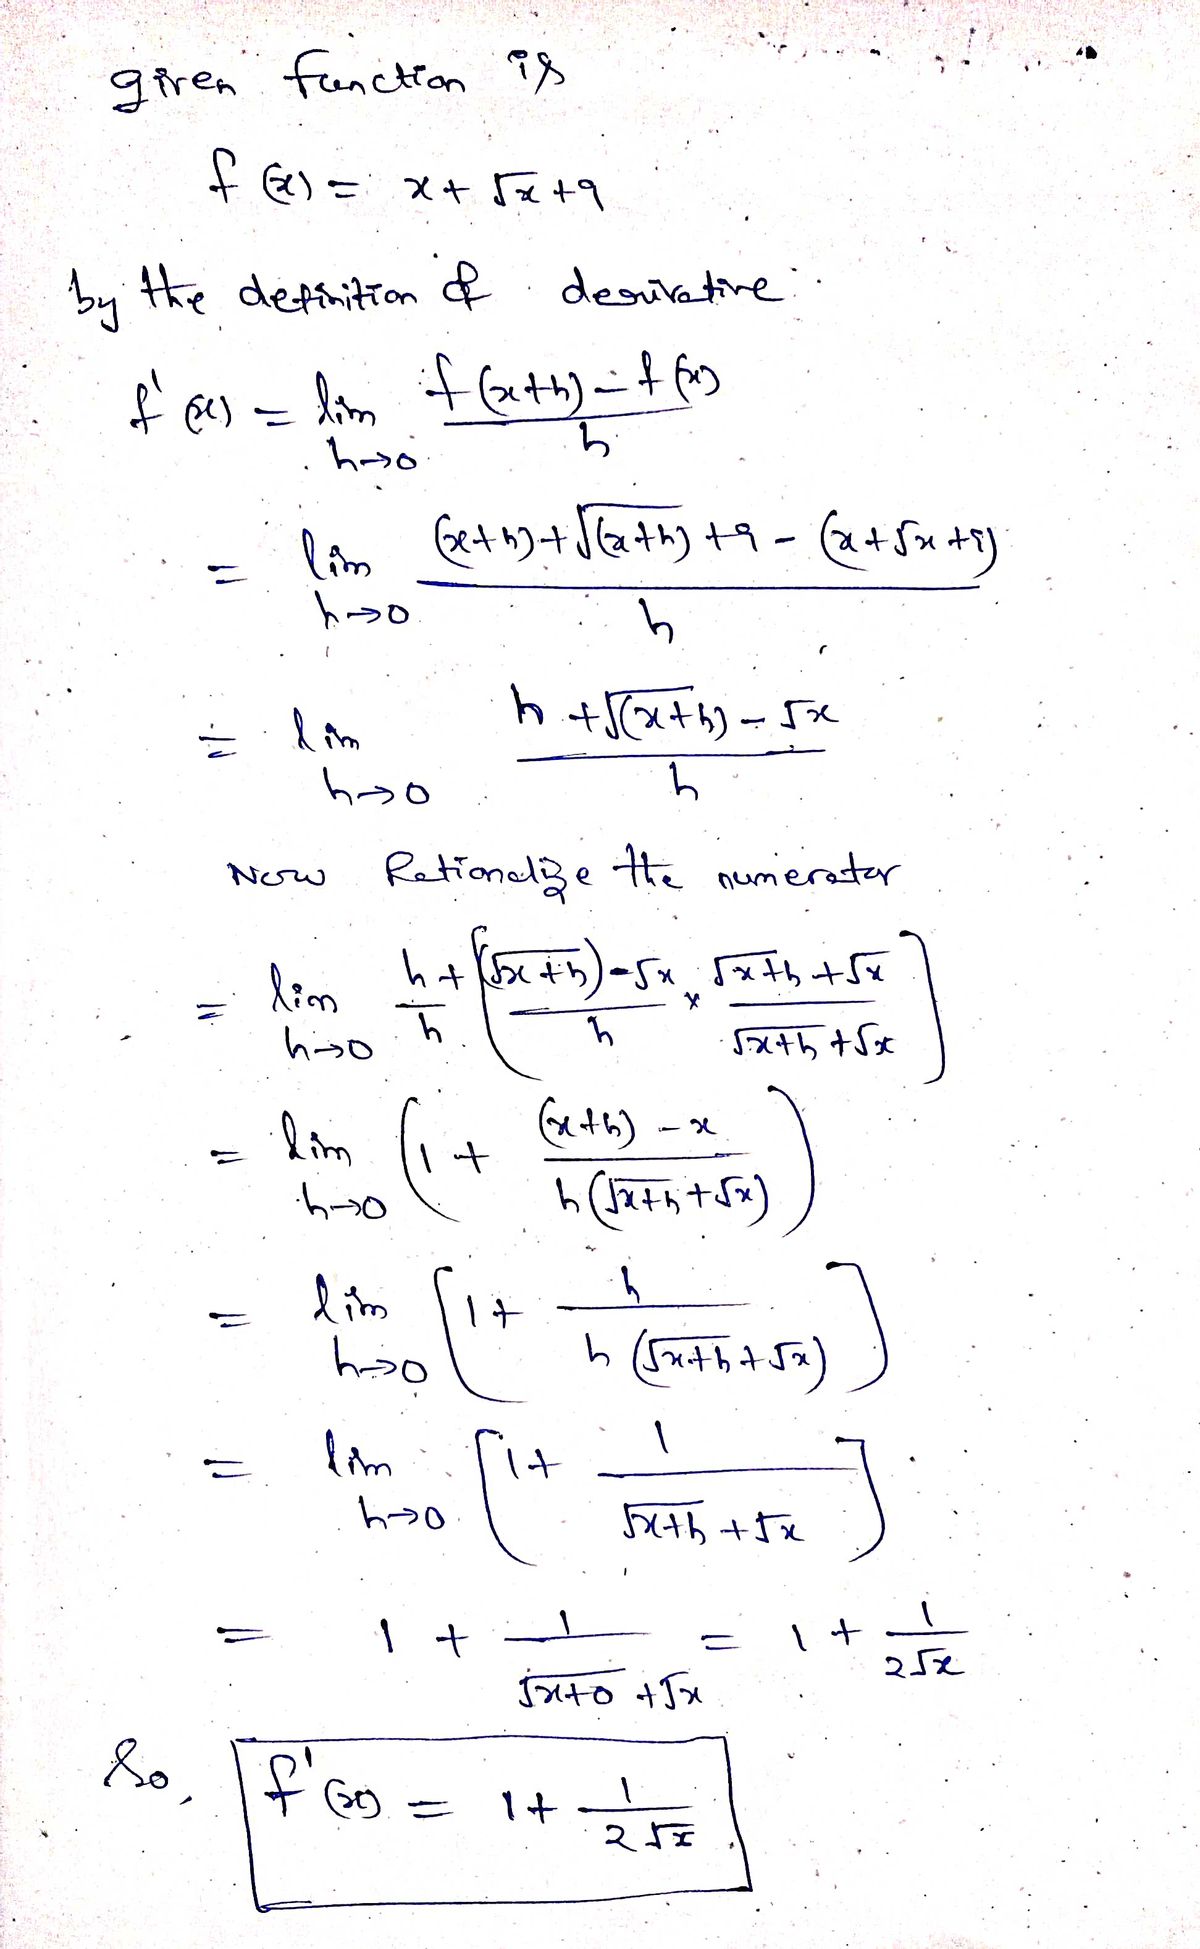 given function is
f(x) = x + √x + 9
by the definition of derivative
f'(x) = lim h→0 (f(x+h) - f(x))/h
= lim h→0 ((x+h) + √(x+h) + 9 - (x + √x + 9))/h
= lim h→0 (h + √(x+h) - √x)/h
Now Rationalize the numerator
= lim h→0 h/h + [((√x+h) - √x)/h × (√x+h + √x)/(√x+h + √x)]
= lim h→0 (1 + ((x+h) - x)/(h(√x+h + √x)))
= lim h→0 [1 + h/(h(√x+h + √x))]
= lim h→0 [1 + 1/(√x+h + √x)]
= 1 + 1/(√x+0 + √x) = 1 + 1/(2√x)
So, f'(x) = 1 + 1/(2√x)